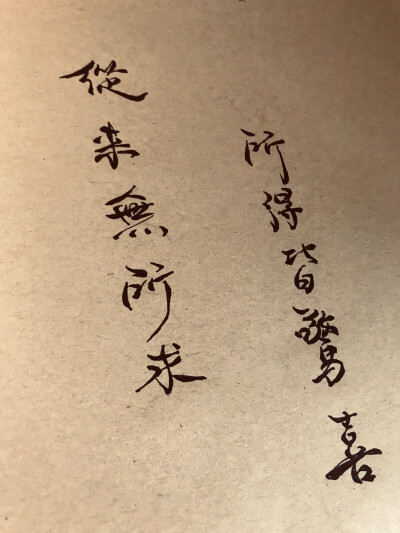 從来無所求
所得皆驚喜